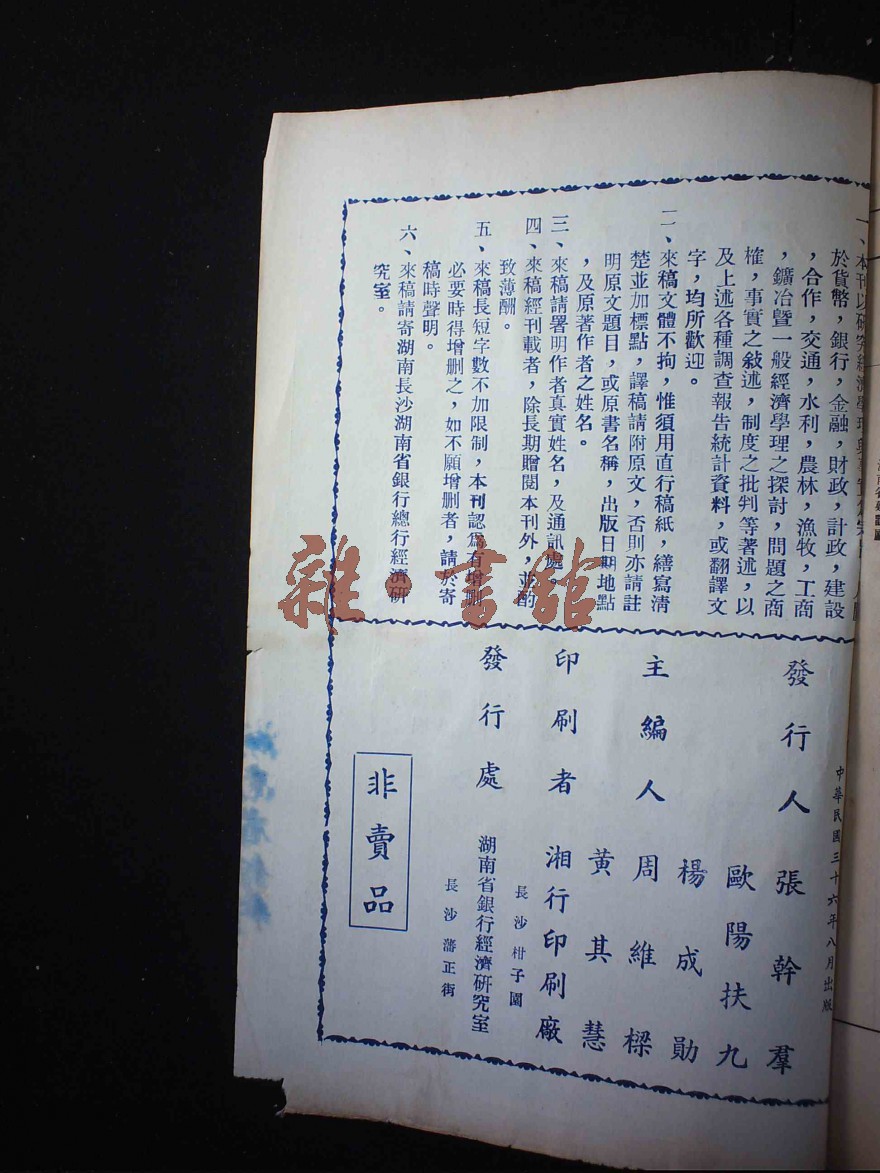 一、本刊以研究經濟學理與事實為宗
於貨幣，銀行，金融，財政，計政，建設
，合作，交通，水利，農林，漁牧，工商
，鑛冶暨一般經濟學理之探討，問題之商
榷，事實之敍述，制度之批判等著述，以
及上述各種調查報告統計資料，或翻譯文
字，均所歡迎。
二、來稿文體不拘，惟須用直行稿紙，繕寫清
楚並加標點，譯稿請附原文，否則亦請註
明原文題目，或原書名稱，出版日期地點
，及原著作者之姓名。
三、來稿請署明作者真實姓名，及通訊處。
四、來稿經刊載者，除長期贈閱本刊外，並酌
致薄酬。
五、來稿長短字數不加限制，本刊認爲有增删
必要時得增删之，如不願增删者，請於寄
稿時聲明。
六、來稿請寄湖南長沙湖南省銀行總行經濟研
究室。
中華民國三十六年八月出版
發行人 張幹羣
歐陽扶九
楊成勛
主編人 周維樑
黃其慧
印刷者 湘行印刷廠
長沙柑子園
發行處 湖南省銀行經濟研究室
長沙藩正街
非賣品
雜·書舘